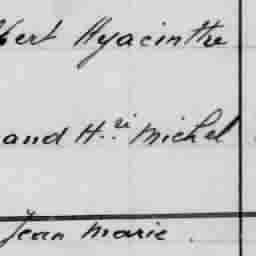 bert Hyacinthe
and H.ri Michel
Jean Marie .